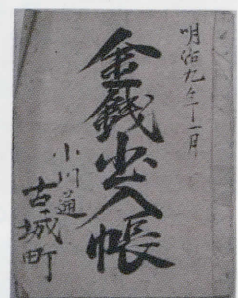 明治九年一月
金銭出入帳
小川通
古城町